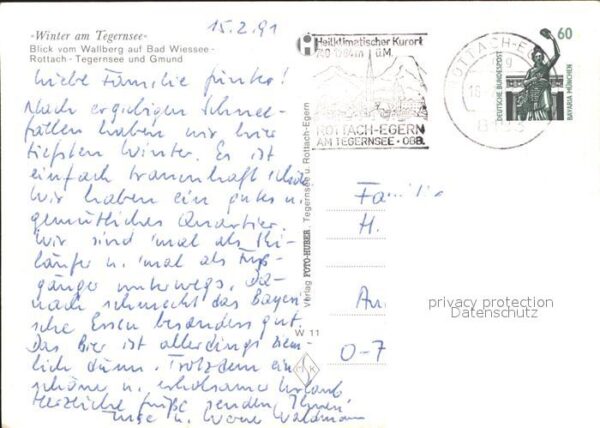 15.2.91
»Winter am Tegernsee«
Blick vom Wallberg auf Bad Wiessee -
Rottach - Tegernsee und Gmund
Liebe Familie
Nach ergiebigen Schnee-
fällen haben wir hier
tiefsten Winter. Es ist
einfach traumhaft schön
Wir haben ein gutes u.
gemütliches Quartier.
Wir sind 'mal als Ski-
läufer u. 'mal als Fuß-
gänger unterwegs. Da-
nach schmeckt das Bayeri-
sche Essen besonders gut.
Das Bier ist allerdings ziem-
lich dünn. Trotzdem ein
schöne u. erholsame Urlaub
Herzliche Grüße senden Ihnen
Inge u. Werner
Verlag FOTO-HUBER Tegernsee u. Rottach-Egern
W 11
Heilklimatischer Kurort
ü.M.
ROTTACH-EGERN
AM TEGERNSEE · OBB.
ROTTACH-EG
60
DEUTSCHE BUNDESPOST
BAVARIA MÜNCHEN
Famili
H.
An
O-7
privacy protection
Datenschutz